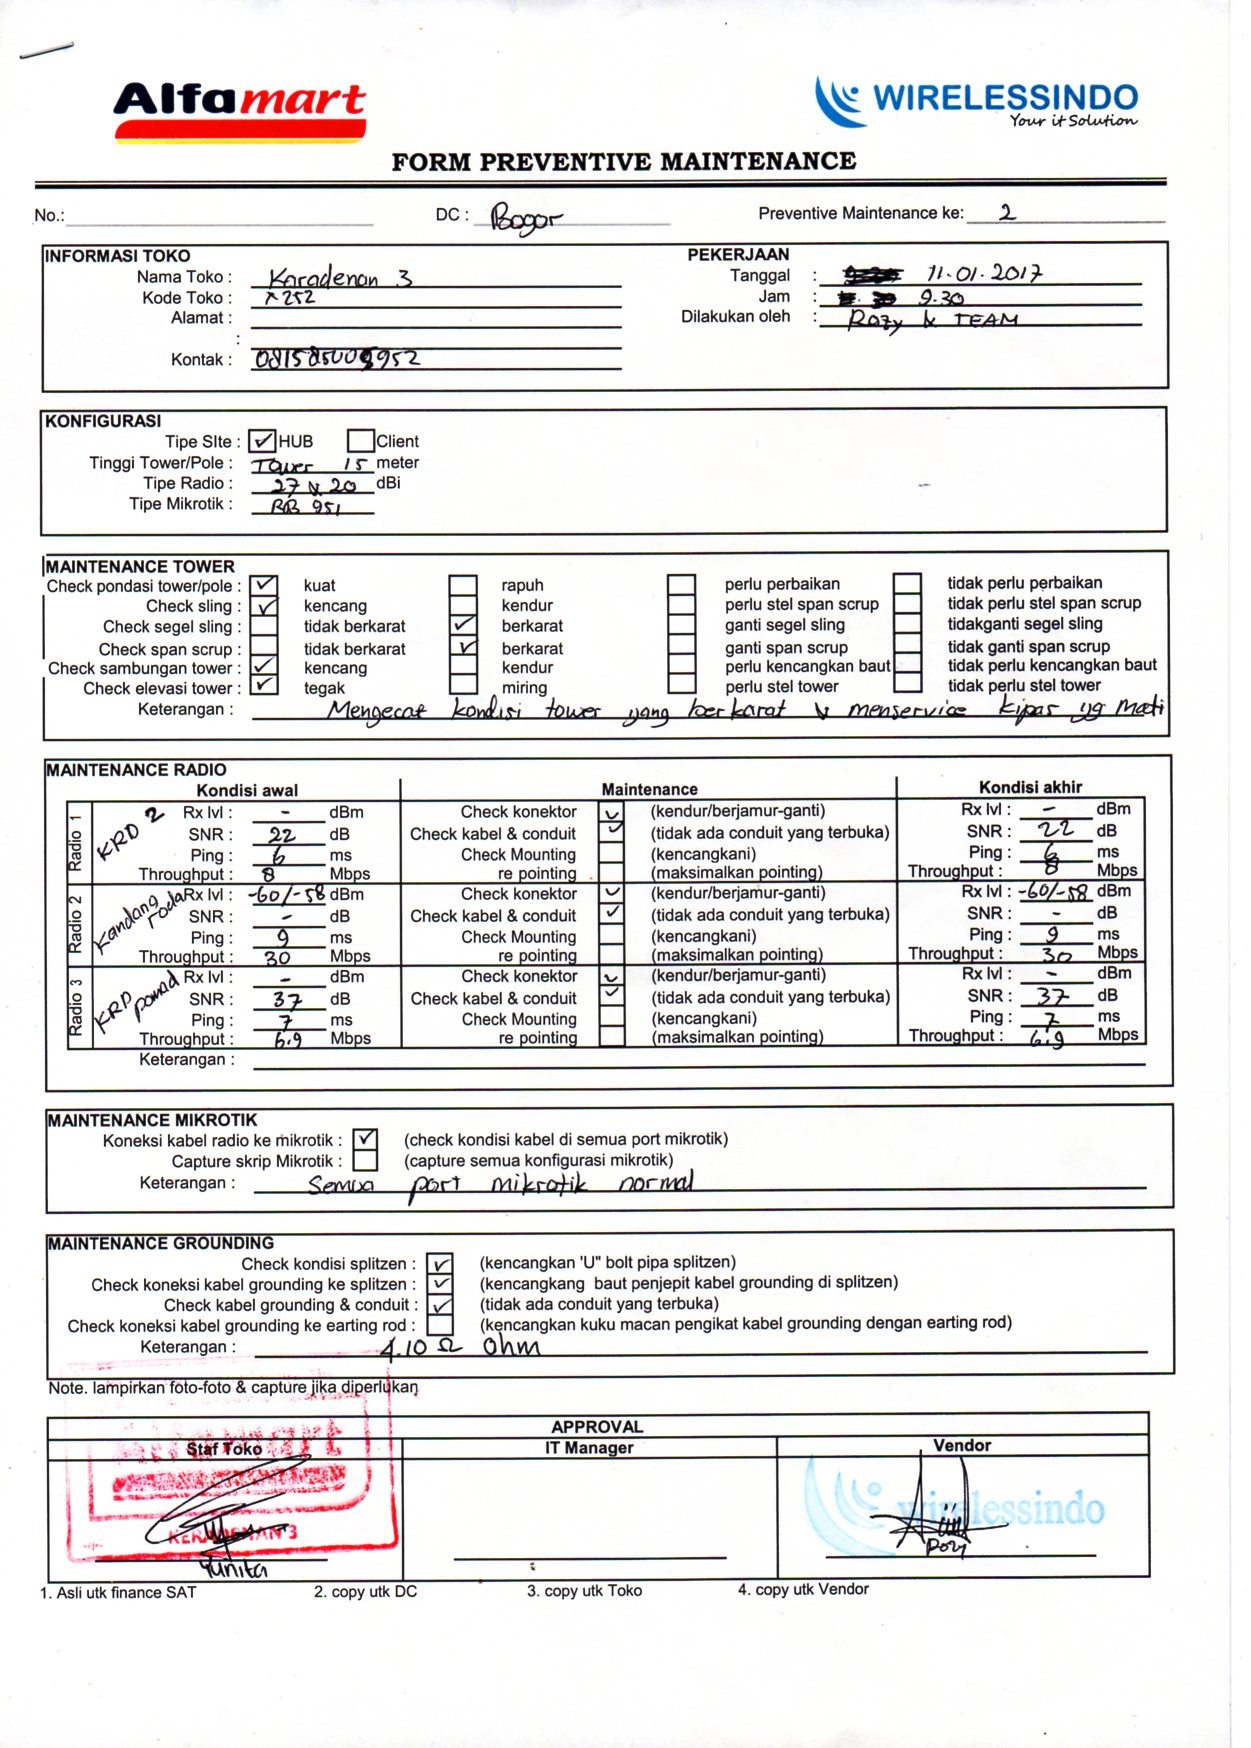 Alfamart
WIRELESSINDO
Your it Solution
FORM PREVENTIVE MAINTENANCE
No.: DC : Bogor Preventive Maintenance ke: 2
INFORMASI TOKO PEKERJAAN
Nama Toko : Karadenan 3 Tanggal : 11.01.2017
Kode Toko : 252 Jam : 9.30
Alamat : Dilakukan oleh : Rozy & TEAM
:
Kontak :
KONFIGURASI
Tipe SIte : ✓ HUB Client
Tinggi Tower/Pole : Tower 15 meter
Tipe Radio : 27 & 20 dBi
Tipe Mikrotik : RB 951
MAINTENANCE TOWER
Check pondasi tower/pole : ✓ kuat rapuh perlu perbaikan tidak perlu perbaikan
Check sling : ✓ kencang kendur perlu stel span scrup tidak perlu stel span scrup
Check segel sling : tidak berkarat ✓ berkarat ganti segel sling tidakganti segel sling
Check span scrup : tidak berkarat ✓ berkarat ganti span scrup tidak ganti span scrup
Check sambungan tower : ✓ kencang kendur perlu kencangkan baut tidak perlu kencangkan baut
Check elevasi tower : ✓ tegak miring perlu stel tower tidak perlu stel tower
Keterangan : Mengecat kondisi tower yang berkarat & menservice kipas yg Mati
MAINTENANCE RADIO
Kondisi awal Maintenance Kondisi akhir
Radio 1 KRD 2 Rx lvl : - dBm Check konektor ✓ (kendur/berjamur-ganti) Rx lvl : - dBm
SNR : 22 dB Check kabel & conduit ✓ (tidak ada conduit yang terbuka) SNR : 22 dB
Ping : 6 ms Check Mounting (kencangkani) Ping : 6 ms
Throughput : 8 Mbps re pointing (maksimalkan pointing) Throughput : 8 Mbps
Radio 2 Kandang Roda Rx lvl : -60/-58 dBm Check konektor ✓ (kendur/berjamur-ganti) Rx lvl : -60/-58 dBm
SNR : - dB Check kabel & conduit ✓ (tidak ada conduit yang terbuka) SNR : - dB
Ping : 9 ms Check Mounting (kencangkani) Ping : 9 ms
Throughput : 30 Mbps re pointing (maksimalkan pointing) Throughput : 30 Mbps
Radio 3 KRP pomad Rx lvl : - dBm Check konektor ✓ (kendur/berjamur-ganti) Rx lvl : - dBm
SNR : 37 dB Check kabel & conduit ✓ (tidak ada conduit yang terbuka) SNR : 37 dB
Ping : 7 ms Check Mounting (kencangkani) Ping : 7 ms
Throughput : 6.9 Mbps re pointing (maksimalkan pointing) Throughput : 6.9 Mbps
Keterangan :
MAINTENANCE MIKROTIK
Koneksi kabel radio ke mikrotik : ✓ (check kondisi kabel di semua port mikrotik)
Capture skrip Mikrotik : (capture semua konfigurasi mikrotik)
Keterangan : Semua port mikrotik normal
MAINTENANCE GROUNDING
Check kondisi splitzen : ✓ (kencangkan 'U" bolt pipa splitzen)
Check koneksi kabel grounding ke splitzen : ✓ (kencangkang baut penjepit kabel grounding di splitzen)
Check kabel grounding & conduit : ✓ (tidak ada conduit yang terbuka)
Check koneksi kabel grounding ke earting rod : (kencangkan kuku macan pengikat kabel grounding dengan earting rod)
Keterangan : 4.10 Ω Ohm
Note. lampirkan foto-foto & capture jika diperlukan
APPROVAL
Staf Toko IT Manager Vendor
Alfamart
wirelessindo
KERADENAN 3
Yunita Rozy
1. Asli utk finance SAT 2. copy utk DC 3. copy utk Toko 4. copy utk Vendor